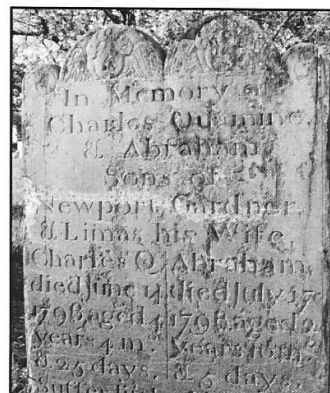 In Memory of
Charles Quamine
& Abraham
Sons of
Newport Gardner,
& Limas his Wife,
Charles Q Abraham,
died June 14 died July 17
1798 aged 4 1798 aged 2
years 4 m.s years 10 m.s
& 25 days. & 5 days.